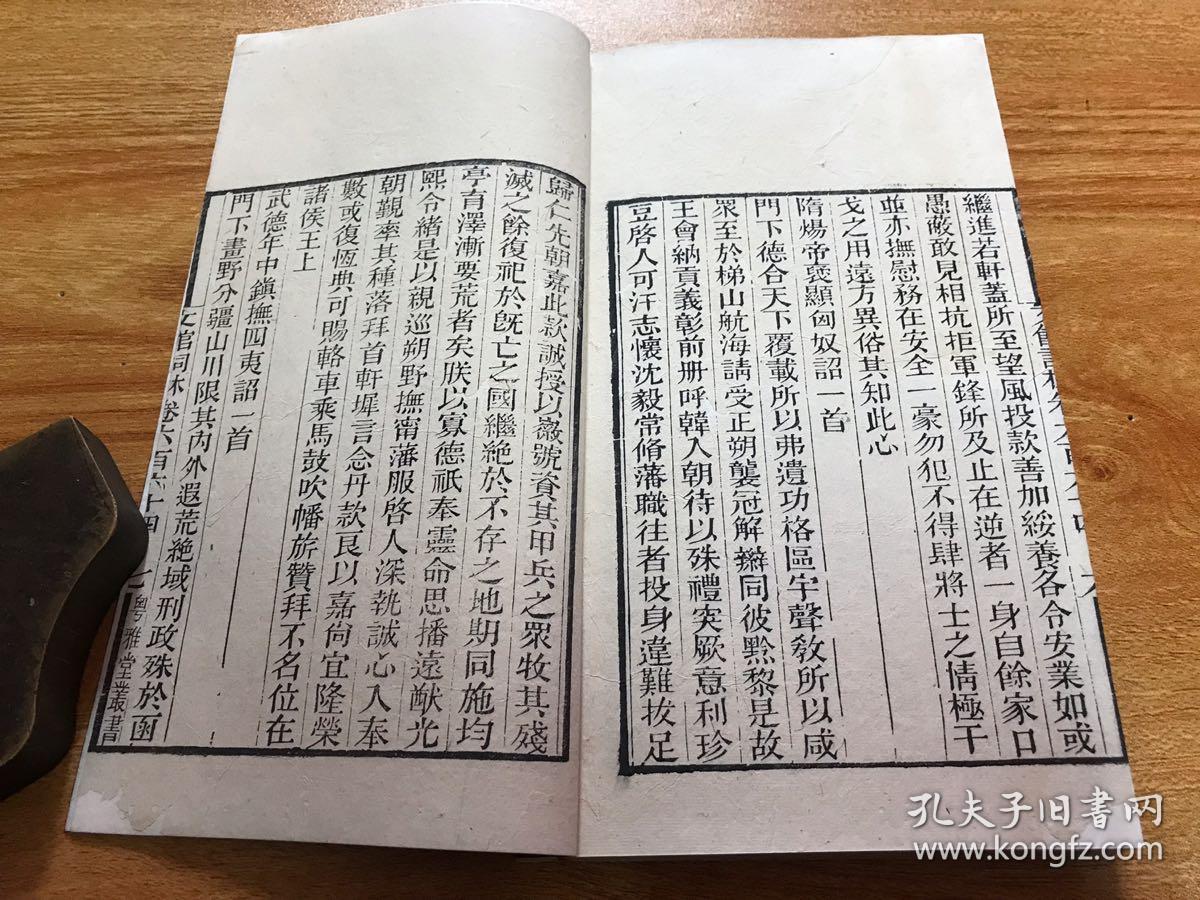 繼進若軒蓋所至望風投款善加綏養各令安業如或
愚蔽敢見相抗拒軍鋒所及止在逆者一身自餘家口
並亦撫慰務在安全一豪勿犯不得肆將士之情極干
戈之用遠方異俗其知此心
隋煬帝襃顯匈奴詔一首
門下德合天下覆載所以弗遺功格區宇聲敎所以咸
眾至於梯山航海請受正朔襲冠解辮同彼黔黎是故
王會納貢義彰前册呼韓入朝待以殊禮突厥意利珍
豆啓人可汗志懷沈毅常脩藩職往者投身違難拔足
歸仁先朝嘉此款誠授以徽號資其甲兵之眾牧其殘
滅之餘復祀於旣亡之國繼絶於不存之地期同施均
亭育澤漸要荒者矣朕以寡德祇奉靈命思播遠猷光
熙令緒是以親巡朔野撫甯藩服啓人深執誠心入奉
朝觀率其種落拜首軒墀言念丹款良以嘉尙宜隆榮
數或復恆典可賜輅車乘馬鼓吹幡旂贊拜不名位在
諸侯王上
武德年中鎭撫四夷詔一首
門下畫野分疆山川限其內外遐荒絶域刑政殊於函
文館詞林卷六百六十四
七
粵雅堂叢書
孔夫子旧书网
www.kongfz.com